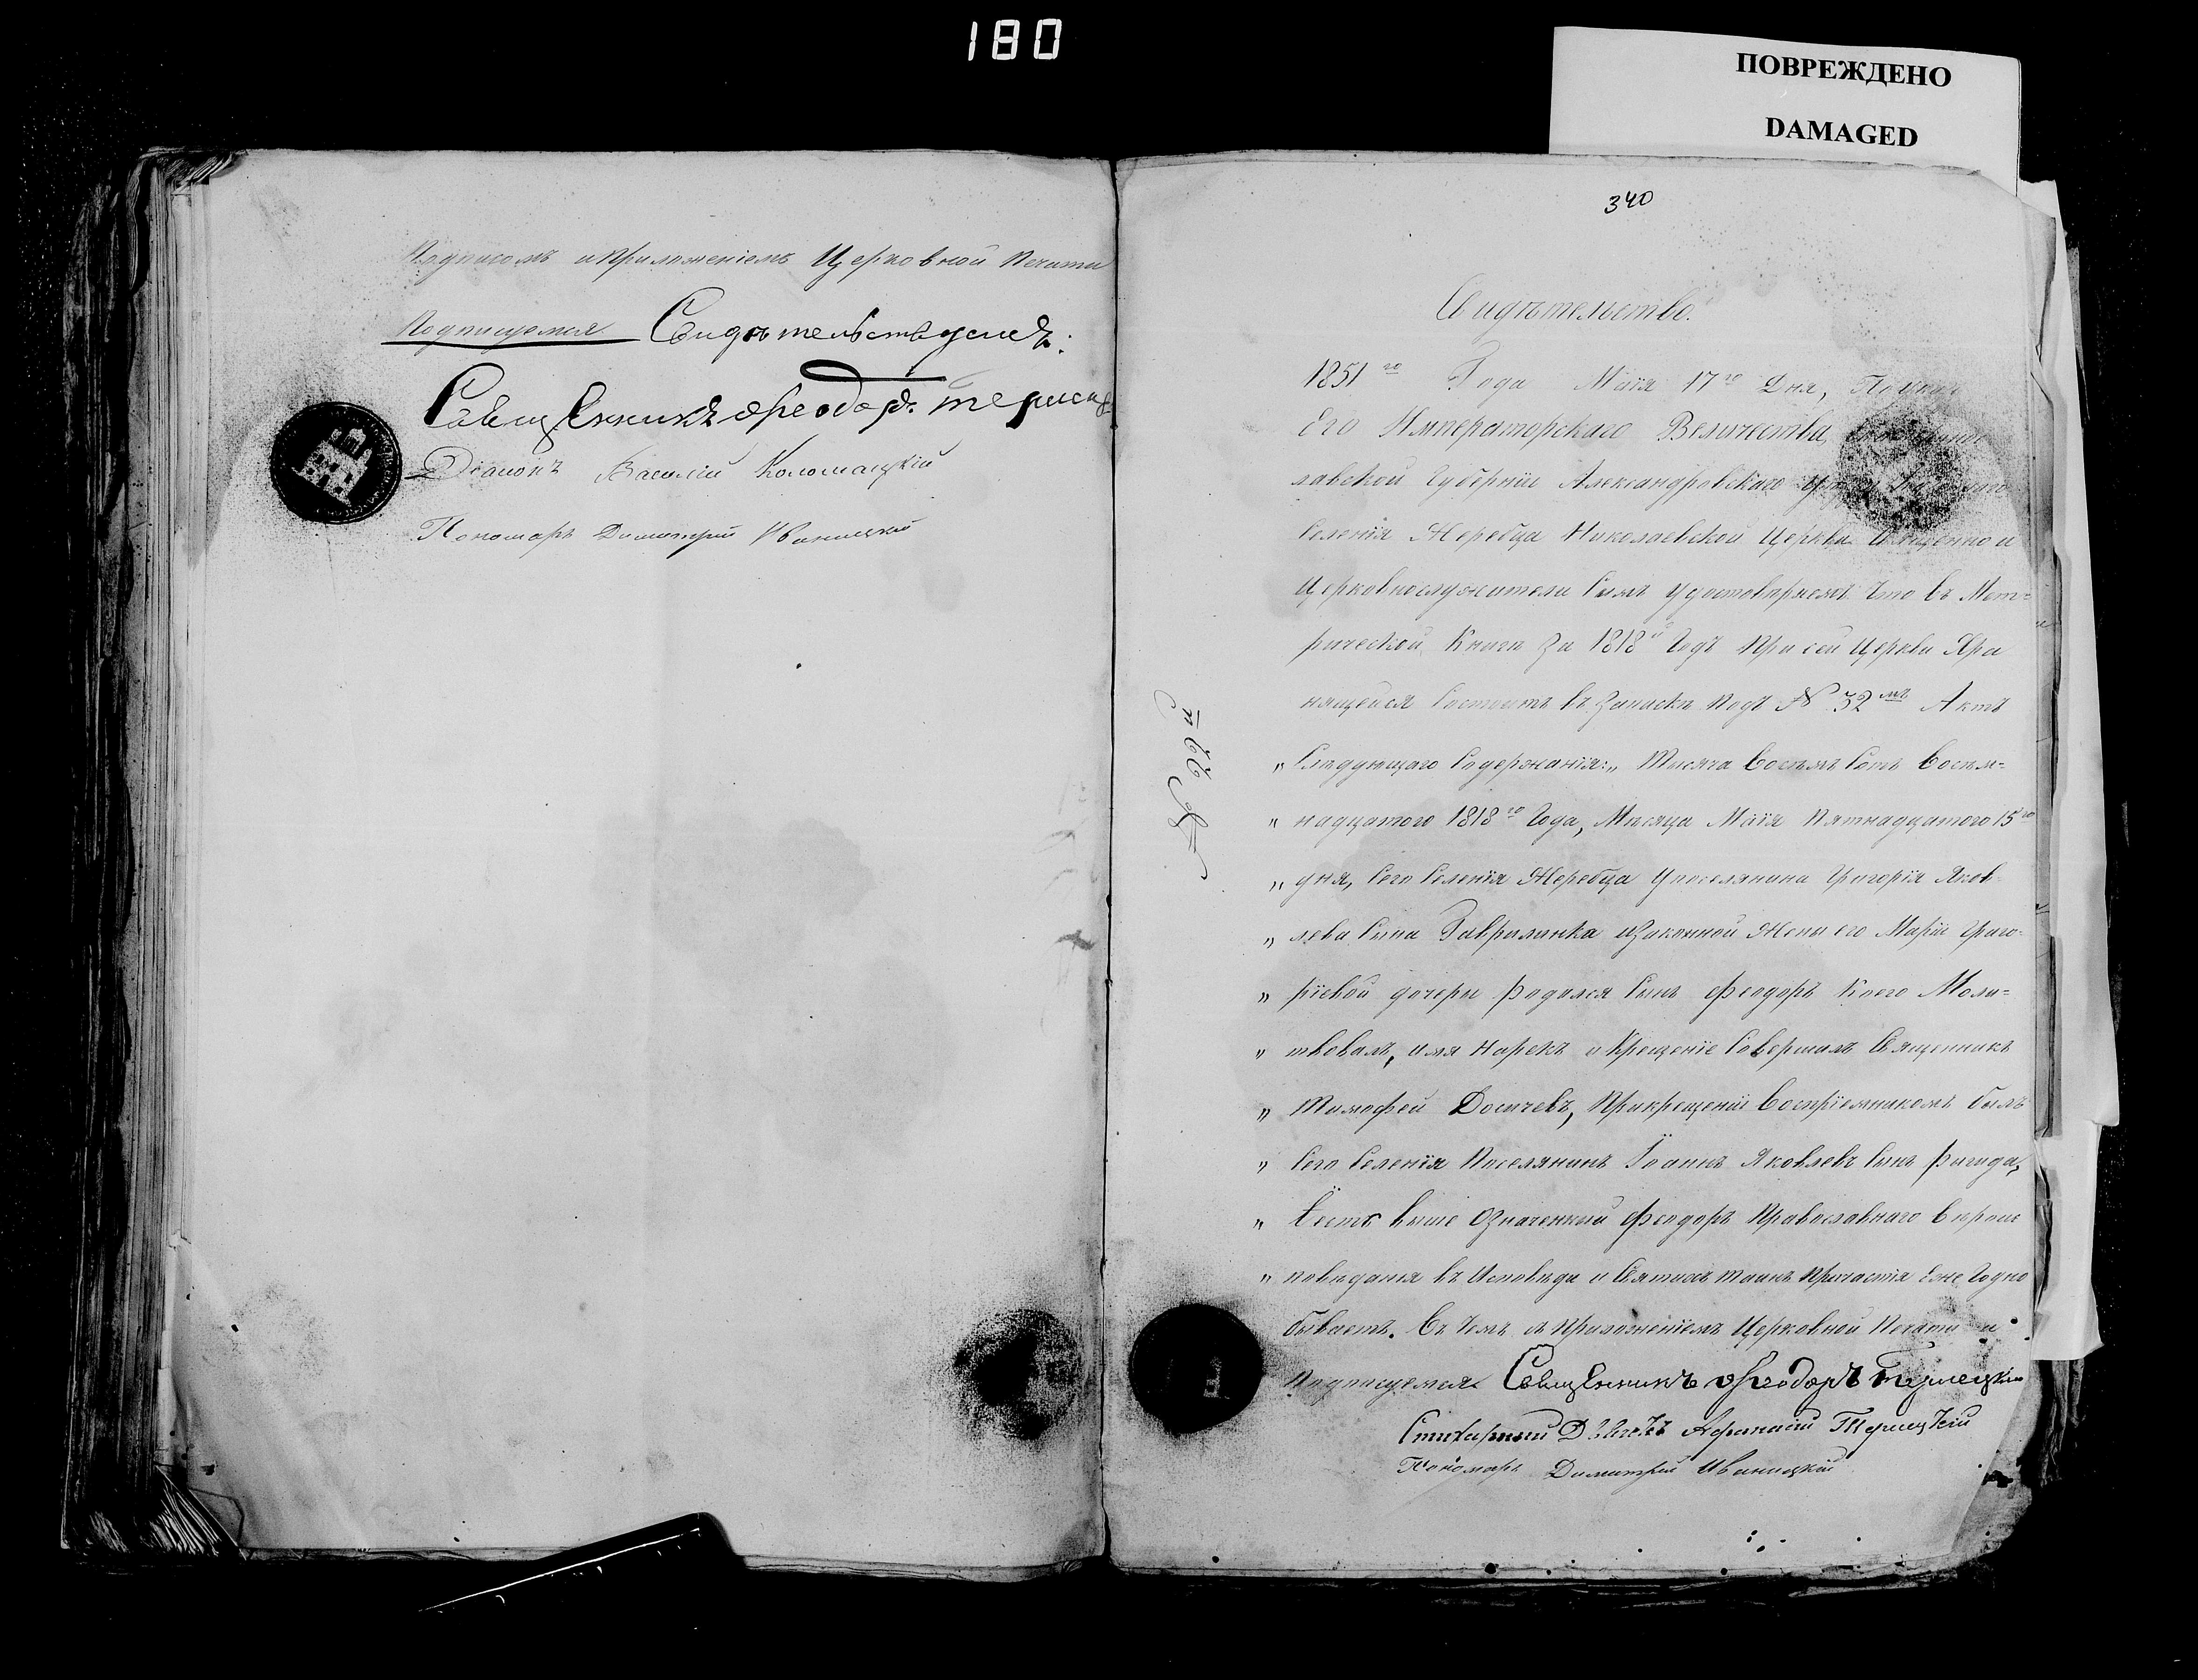 180
ПОВРЕЖДЕНО
DAMAGED
Подписомъ и Приложеніемъ Церковной Печати
Подписуемся Свидѣтельствуемъ:
Священникъ Феодоръ
Діаконъ Василій Коломацкій
Пономарь Димитрій Иваницкій
340
Свидѣтельство.
1851го Года Маія 17го Дня, По указу
Его Императорскаго Величества,
лавской Губерніи Александровскаго
Селенія Жеребца Николаевской Церкви Священно и
Церковнослужители Симъ Удостовѣряемъ Что въ Мет=
рической Книгѣ За 1818й Годъ При сей Церкви Хра
нящейся Состоитъ въ Запискѣ Подъ № 32мъ Актъ
„ Слѣдующаго Содержанія: „ Тысяча Восемь Сотъ Восем=
„ надцатого 1818го Года, Мѣсяца Маія Пятнадцатого 15го
„ дня, Сего Селенія Жеребца Упоселянина Григорія Яков
„ лева Сына Гаврилинка изаконной Жены его Маріи Григо-
„ ріевой дочери Родился Сынъ Феодоръ Коего Моли=
„ твовалъ, имя Нарекъ и Крещеніе Совершалъ Священникъ
„ Тимофей Досичевъ, Прикрещеніи Воспріемникомъ былъ
„ Сего Селенія Поселянинъ Іоаннъ Яковлевъ Сынъ
„ Есть выше Означенный Феодоръ Православнаго Вѣроис
„ повѣданія въ Исповѣди и Святыхъ Таинъ Причастія Еже Годно
бываетъ. Въ Чемъ съ Приложеніемъ Церковной Печати и
Подписуемся Священникъ Феодоръ Термецкій
Стихарный Дьячекъ Афанасій Термецкій
Пономарь Димитрій Иваницкій